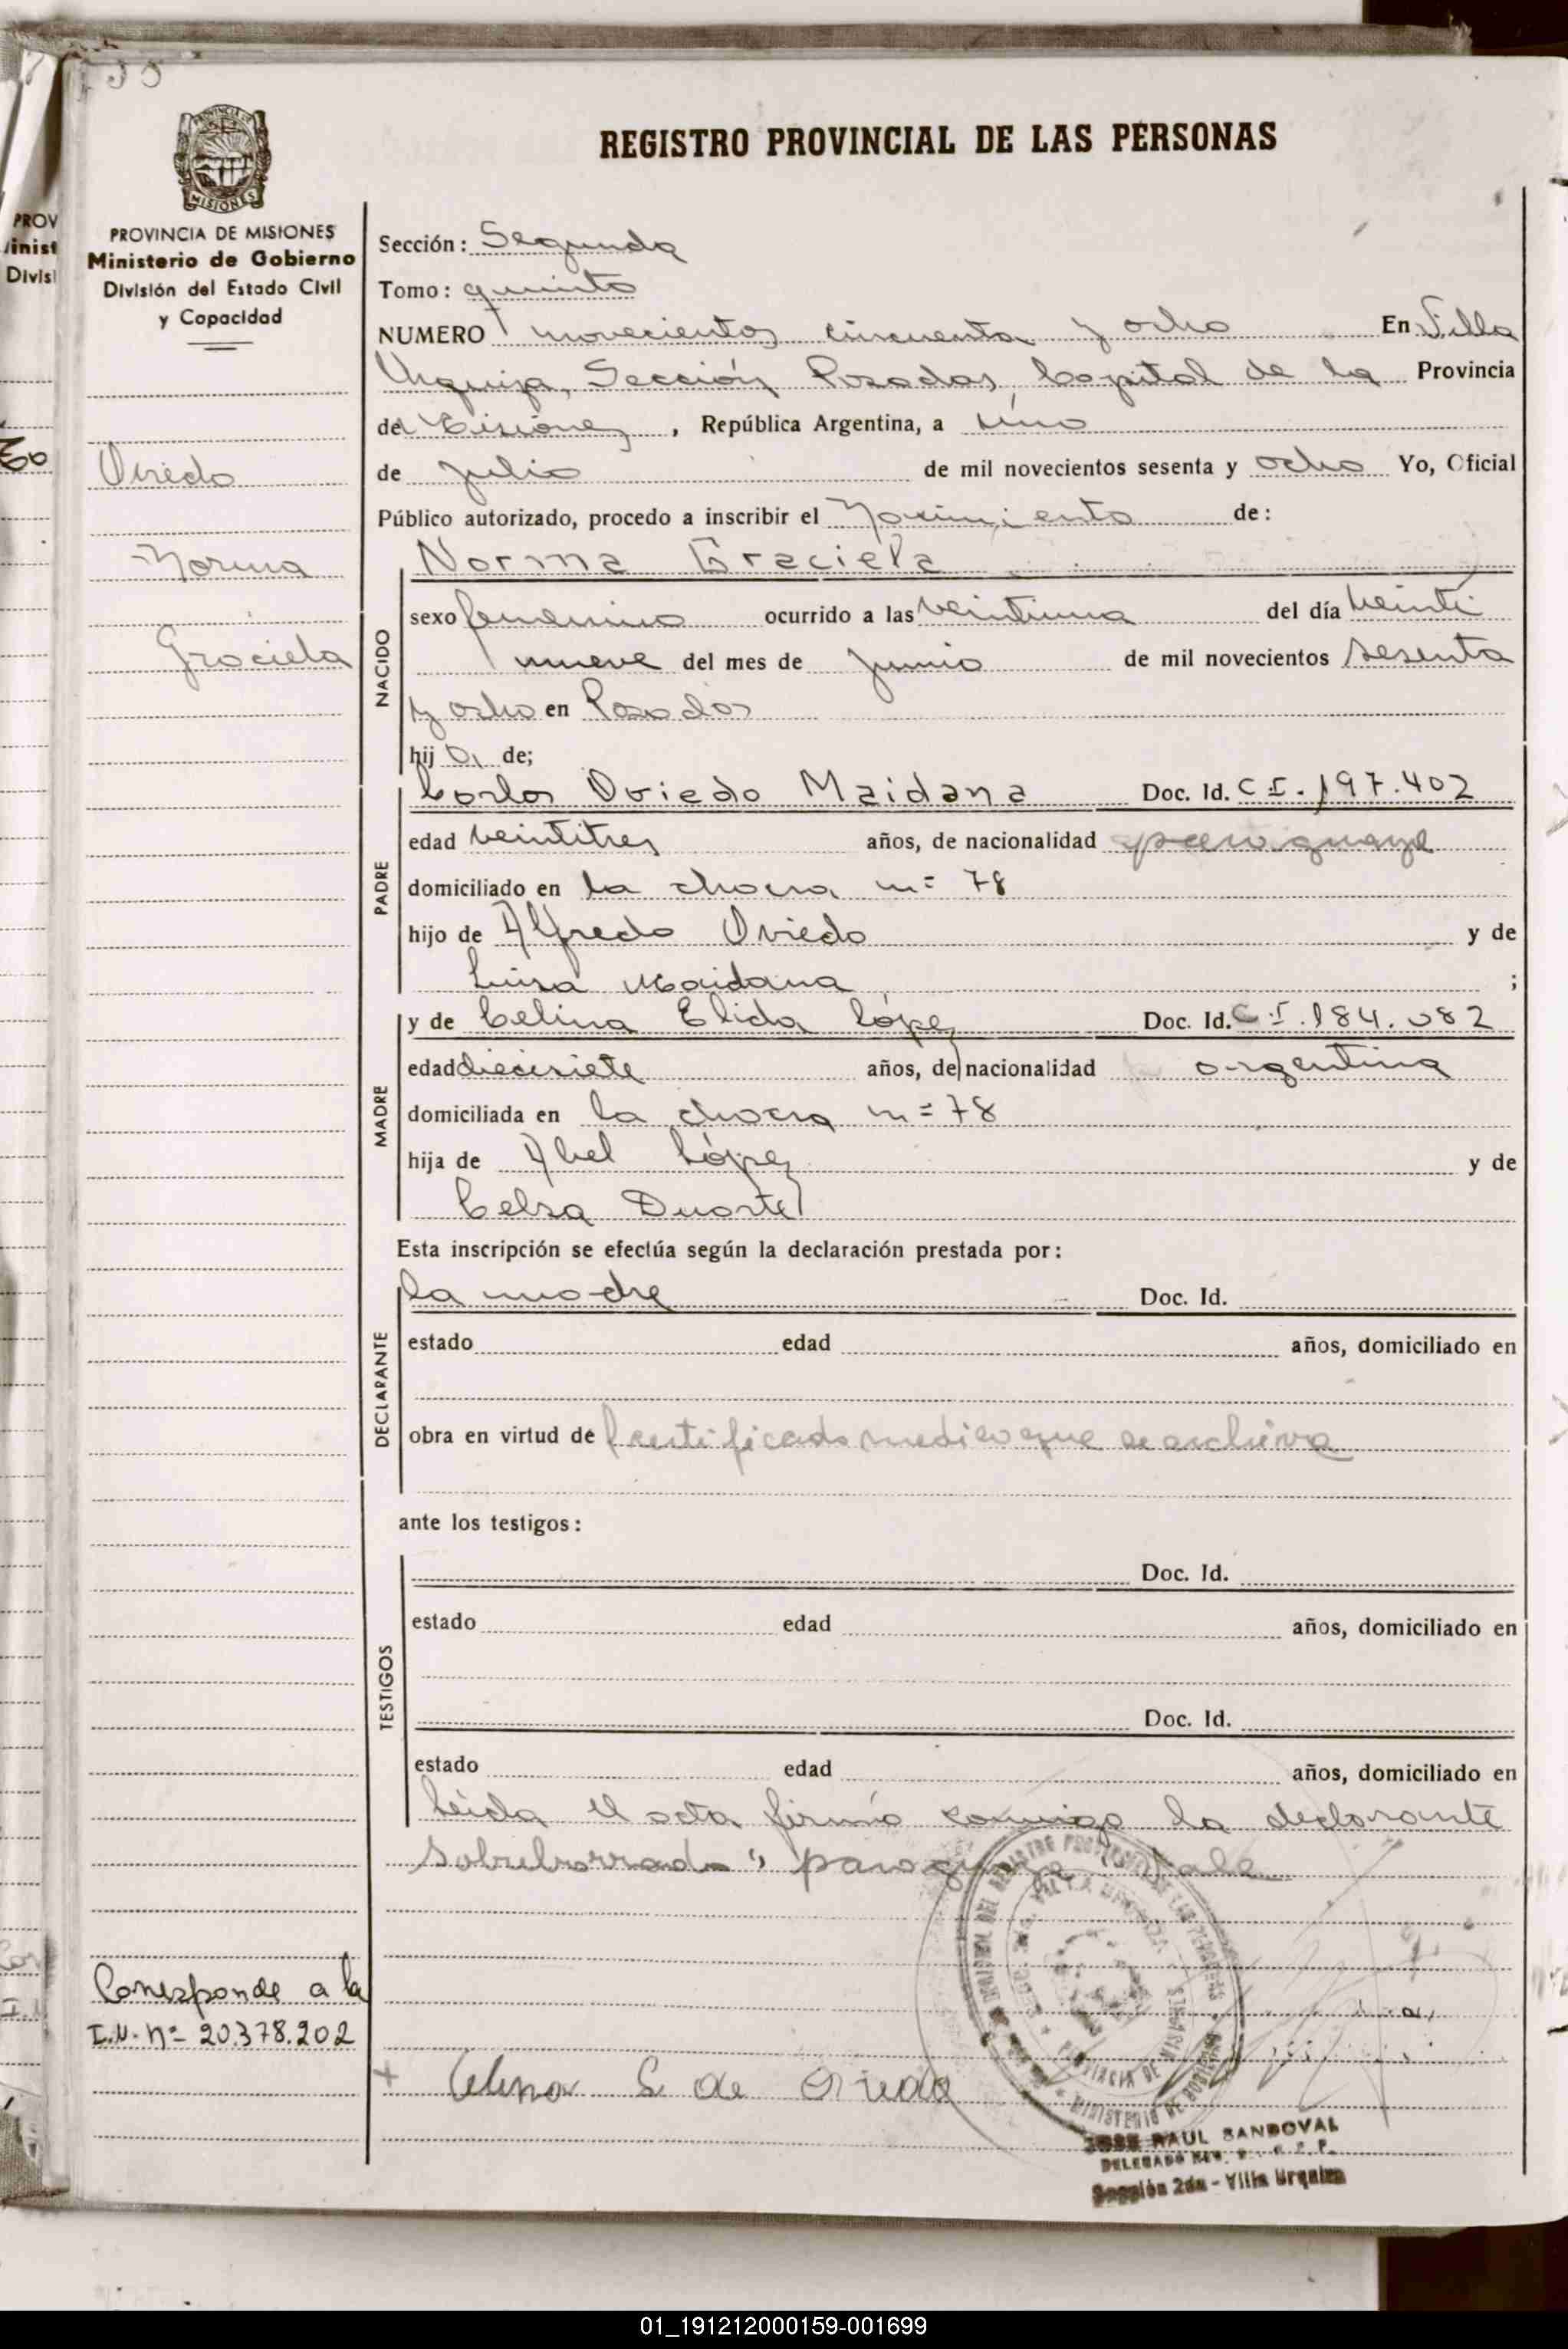 REGISTRO PROVINCIAL DE LAS PERSONAS
MISIONES
PROVINCIA DE MISIONES
Ministerio de Gobierno
División del Estado Civil
y Capacidad
Oviedo
Norma
Graciela
Corresponde a la
I.N. nº 20.378.202
Sección: Segunda
Tomo: quinto
NUMERO novecientos cincuenta y ocho En Villa
Urquiza, Sección Posadas, Capital de la Provincia
de Misiones, República Argentina, a uno
de julio de mil novecientos sesenta y ocho Yo, Oficial
Público autorizado, procedo a inscribir el Nacimiento de:
NACIDO
Norma Graciela
sexo femenino ocurrido a las veintiuna del día veinti
nueve del mes de junio de mil novecientos sesenta
y ocho en Posadas
hija de;
PADRE
Carlos Oviedo Maidana Doc. Id. C.I. 197.402
edad veintitres años, de nacionalidad paraguaya
domiciliado en la chacra nº 78
hijo de Alfredo Oviedo y de
Luisa Maidana ;
MADRE
y de Celina Elida López Doc. Id. C.I. 184.082
edad diecisiete años, de nacionalidad argentina
domiciliada en la chacra nº 78
hija de Abel López y de
Celsa Duarte
Esta inscripción se efectúa según la declaración prestada por:
DECLARANTE
la madre Doc. Id.
estado edad años, domiciliado en
obra en virtud de certificado medico que se archiva
ante los testigos:
TESTIGOS
Doc. Id.
estado edad años, domiciliado en
Doc. Id.
estado edad años, domiciliado en
Leida el acta firma conmigo la declarante
Sobreborrado "paraguaya" vale
de Oviedo
JOSE RAUL SANDOVAL
Sección 2da - Villa Urquiza
01_191212000159-001699